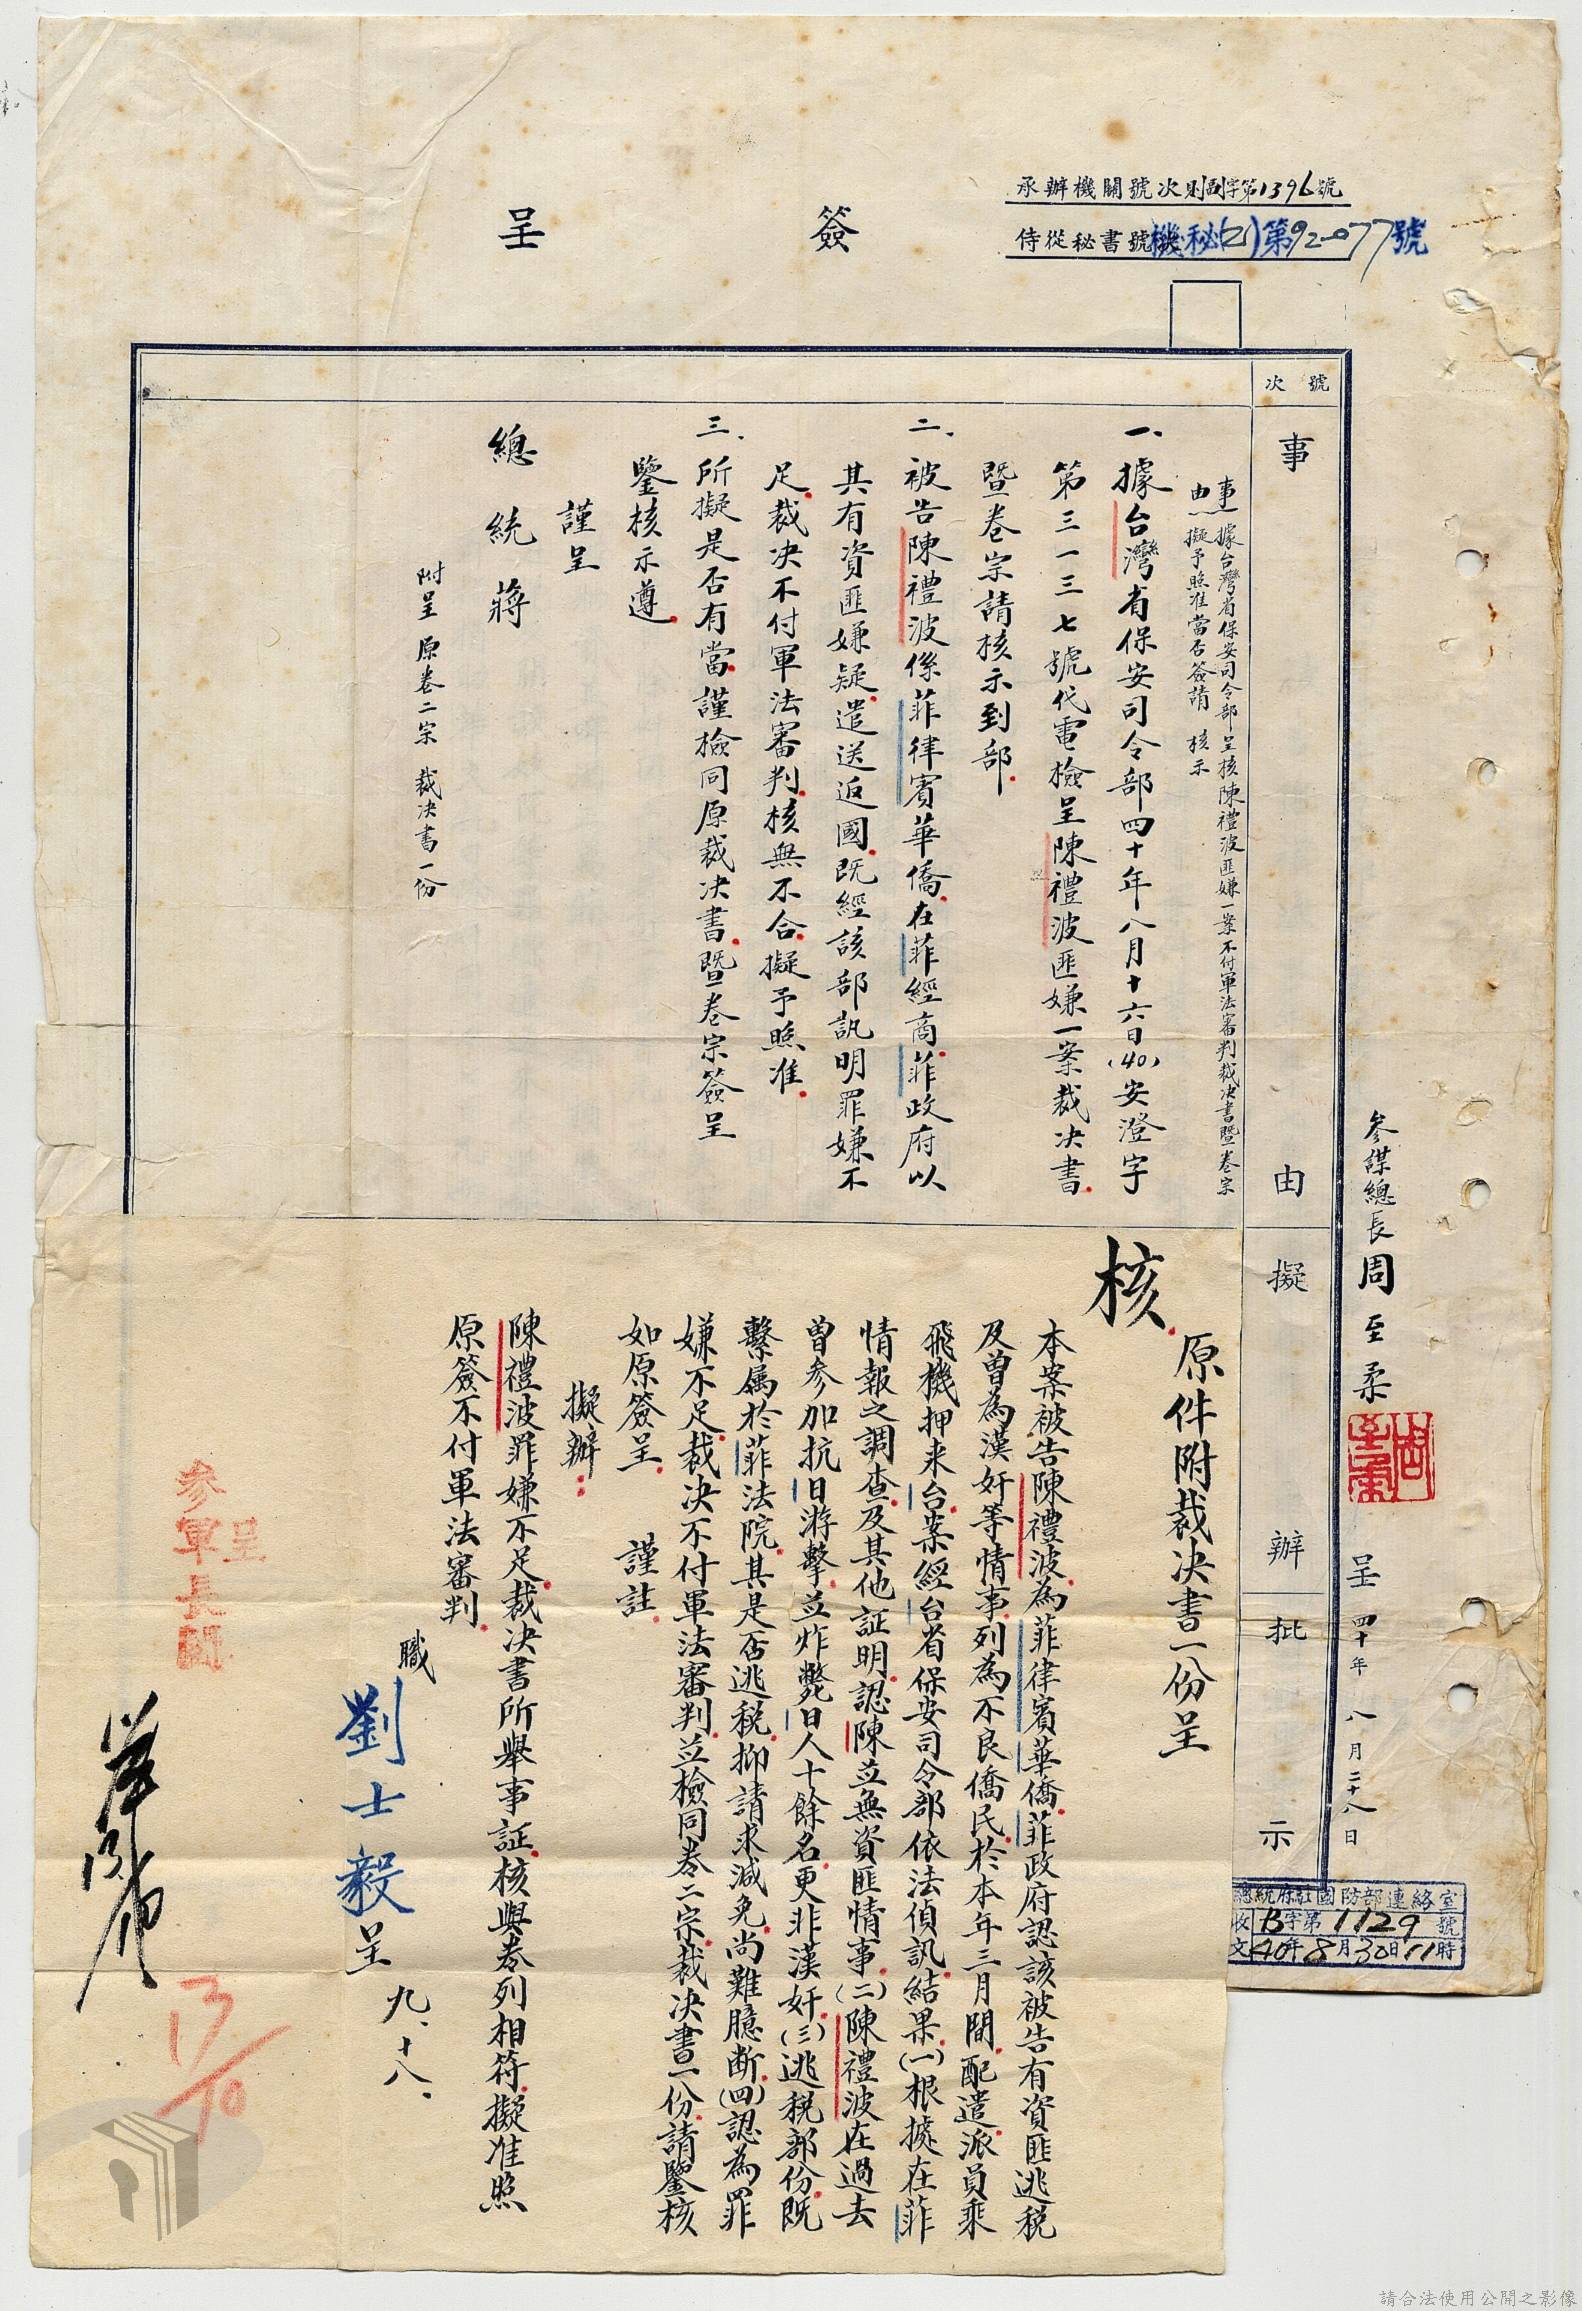 承辦機關號次則副字第1396號
侍從秘書號次機秘(乙)第92-077號
簽呈
號次
事由
擬辦
批示
參謀總長周至柔
呈 四十年八月二十八日
總統府駐國防部連絡室
收文 B字第1129號
40年8月30日11時
事由 據台灣省保安司令部呈核陳禮波匪嫌一案不付軍法審判裁決書暨卷宗
擬予照准當否簽請 核示
一、據台灣省保安司令部四十年八月十六日(40)安澄字
第三一三七號代電檢呈陳禮波匪嫌一案裁決書
暨卷宗請核示到部
二、被告陳禮波係菲律賓華僑在菲經商菲政府以
其有資匪嫌疑遣送返國既經該部訊明罪嫌不
足裁決不付軍法審判核無不合擬予照准
三、所擬是否有當謹檢同原裁決書暨卷宗簽呈
鑒核示遵
謹呈
總統 蔣
附呈 原卷二宗 裁決書一份
核
原件附裁決書一份呈
本案被告陳禮波為菲律賓華僑菲政府認該被告有資匪逃稅
及曾為漢奸等情事列為不良僑民於本年三月間配遣派員乘
飛機押來台案經台省保安司令部依法偵訊結果(一)根據在菲
情報之調查及其他証明認陳並無資匪情事(二)陳禮波在過去
曾參加抗日游擊並炸斃日人十餘名更非漢奸(三)逃稅部份既
繫屬於菲法院其是否逃稅抑請求減免尚難臆斷(四)認為罪
嫌不足裁決不付軍法審判並檢同卷二宗裁決書一份請鑒核
如原簽呈 謹註
擬辦：
陳禮波罪嫌不足裁決書所舉事証核與卷列相符擬准照
原簽不付軍法審判
職 劉士毅 呈 九、十八、
呈
參軍長閱
13/10
請合法使用公開之影像